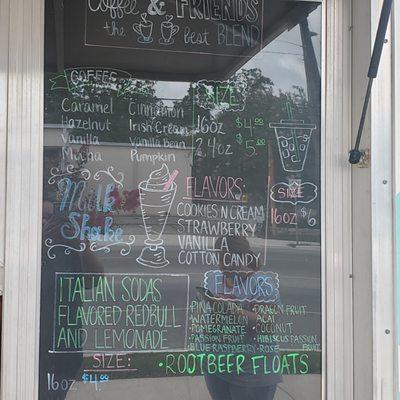 Coffee & FRIENDS
the best BLEND
COFFEE
Caramel
Hazelnut
Vanilla
Mocha
Cinnamon
Irish Cream
Vanilla Bean
Pumpkin
SIZE
16oz $4.00
24oz $5.00
Milk
Shake
FLAVORS:
COOKIES N CREAM
STRAWBERRY
VANILLA
COTTON CANDY
SIZE
16oz $6
ITALIAN SODAS
FLAVORED REDBULL
AND LEMONADE
SIZE:
16oz $4.00
FLAVORS
PINA COLADA
WATERMELON
POMEGRANATE
PASSION FRUIT
BLUE RASPBERRY
•DRAGON FRUIT
•ACAI
•COCONUT
•HIBISCUS PASSION FRUIT
•ROSE
•ROOTBEER FLOATS